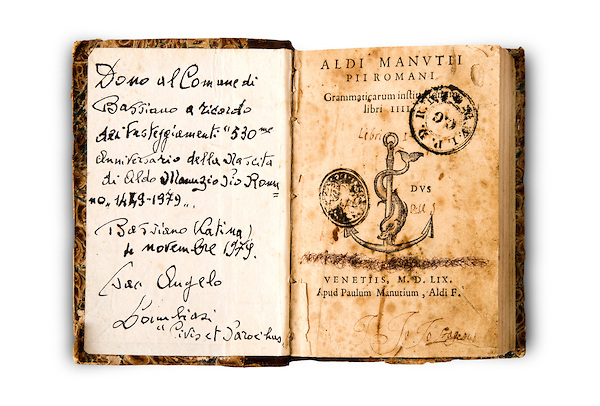 Dono al Comune di
Bassiano a ricordo
dei festeggiamenti "530mo
Anniversario della Nascita
di Aldo Manuzio Pio Roma
no" 1449-1979".
Bassiano (Latina)
4 novembre 1979.
Sac Angelo
Lombiasi
"Civis et Parochus
ALDI MANVTII
PII ROMANI
Grammaticarum
libri IIII.
Libri
DVS
VENETIIS, M. D. LIX.
Apud Paulum Manutium, Aldi F.